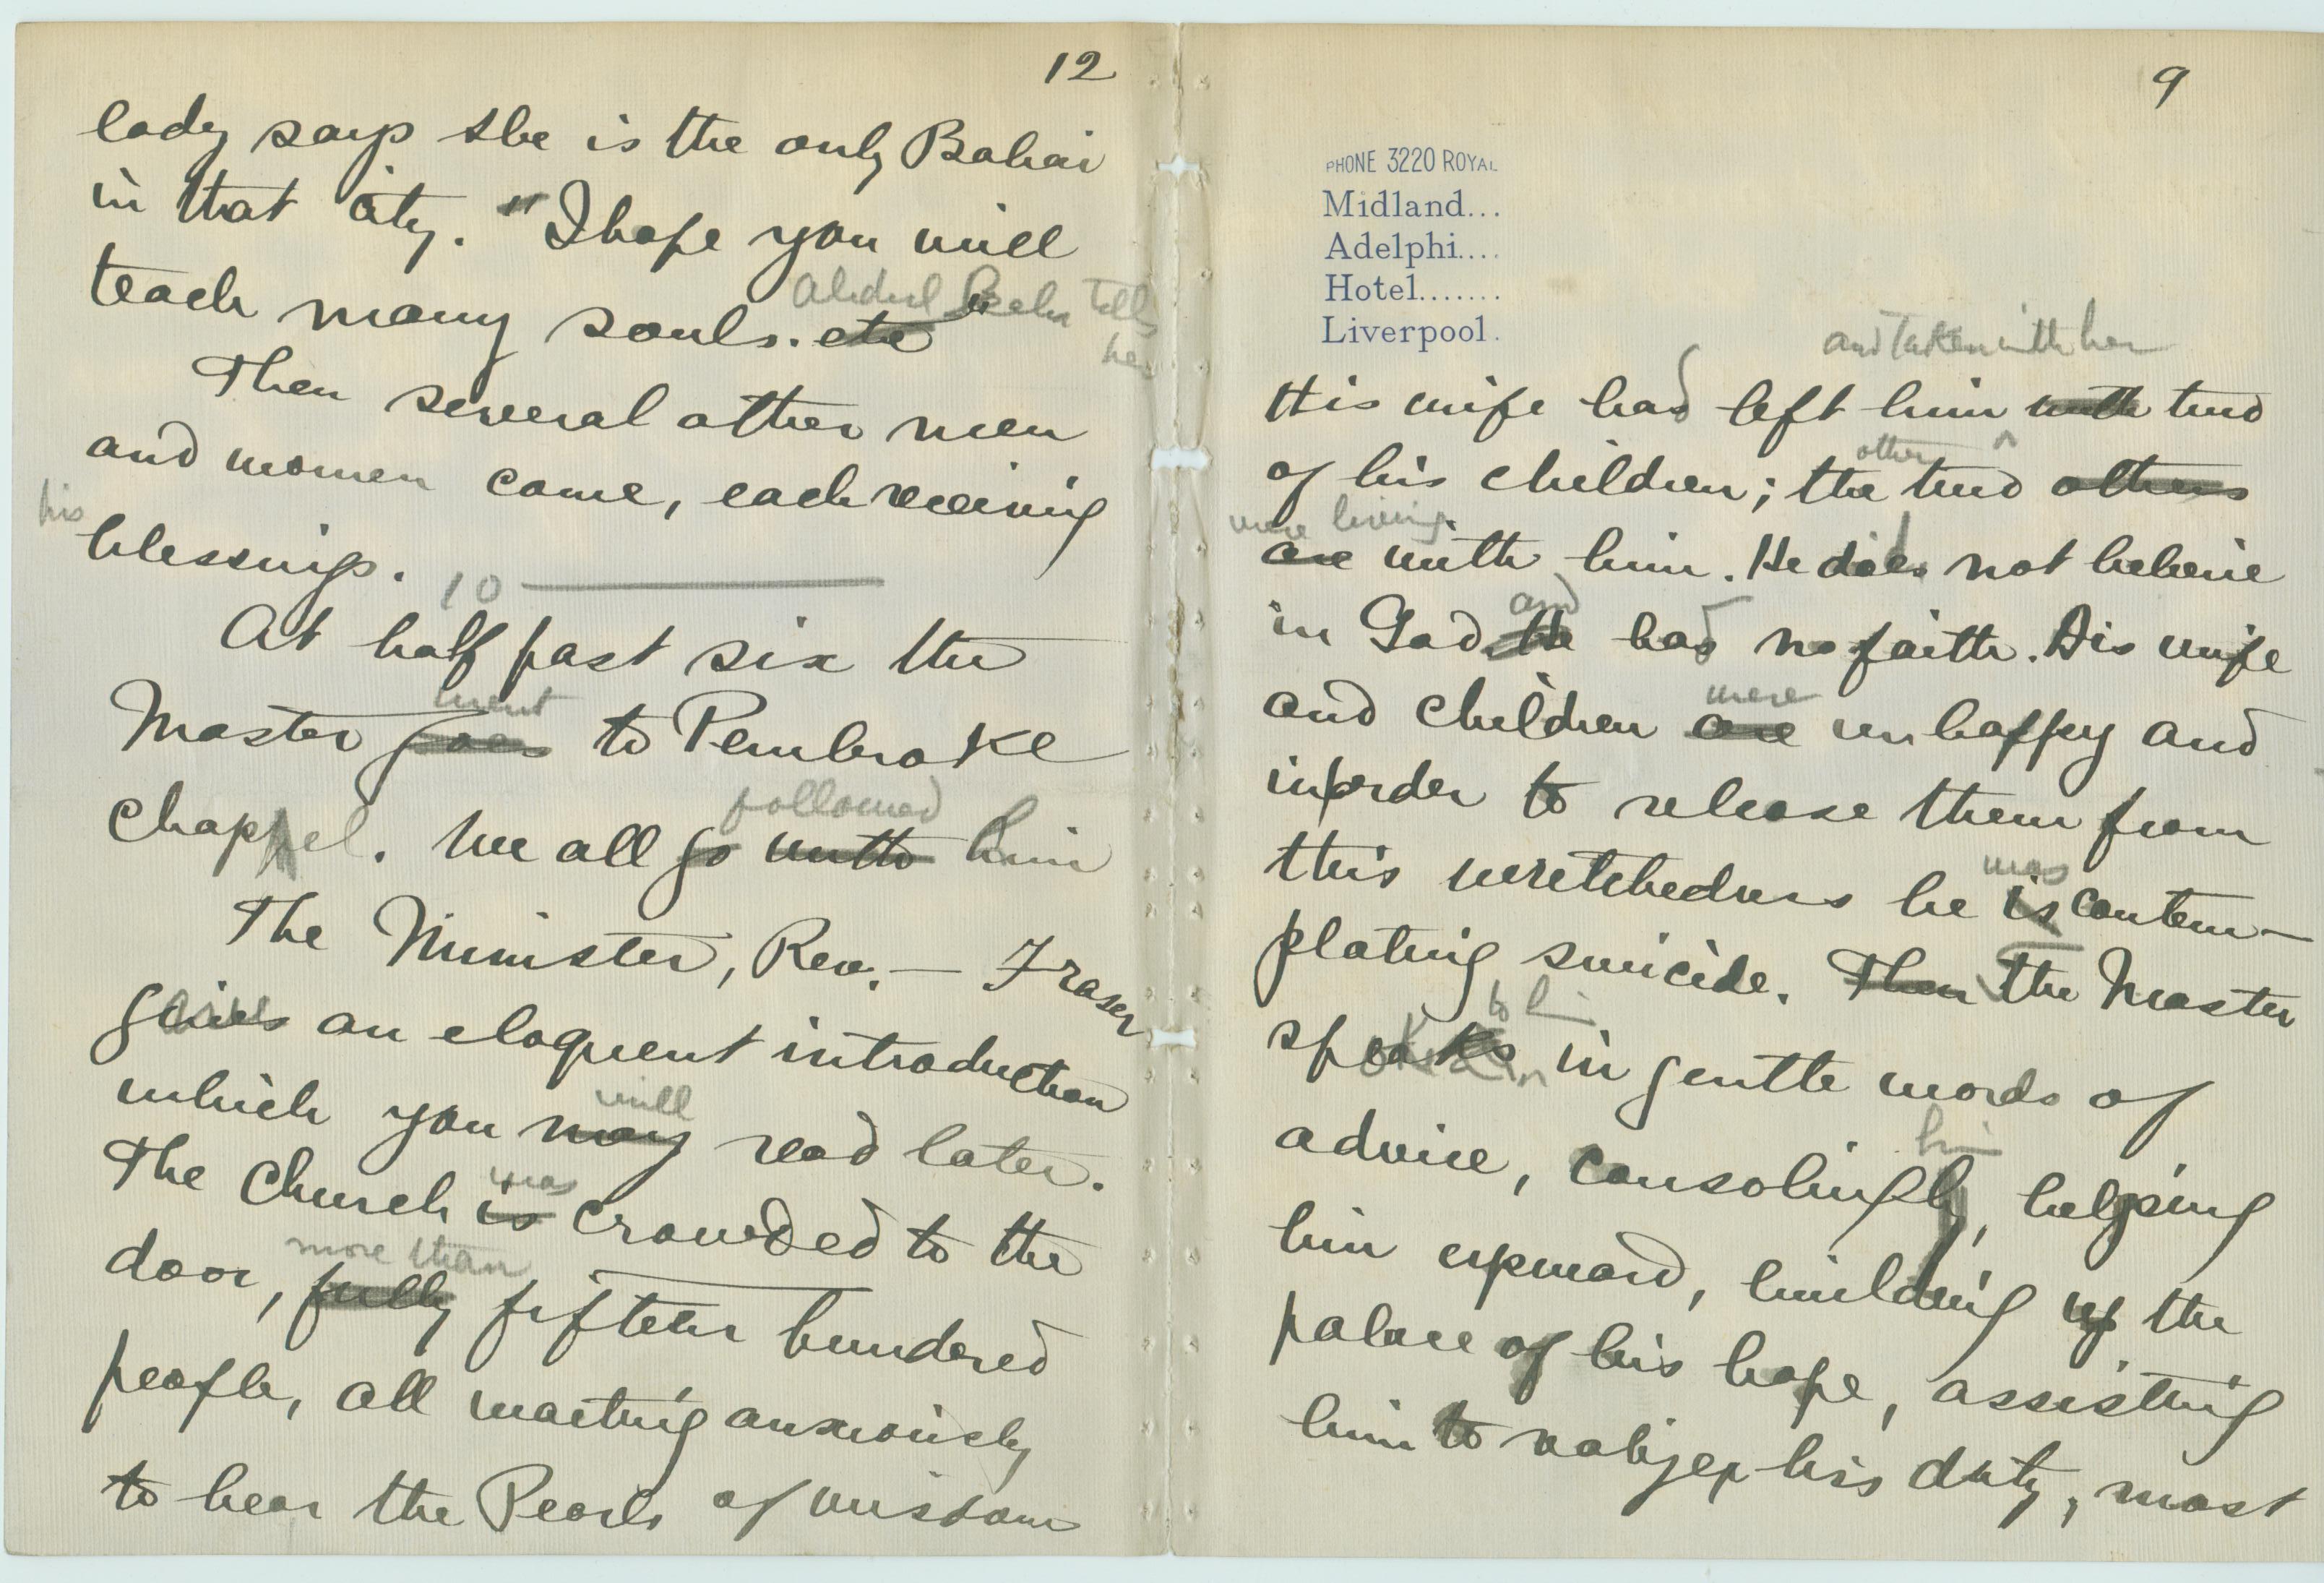 12
lady says she is the only Bahai
in that city. "I hope you will
teach many souls. etc" Abdul Baha tells
her
Then several other men
and women come, each receiving
his
blessings.
10
At half past six the
went
Master goes to Pembroke
followed
Chappel. We all go with him
The Minister, Rev. — Fraser
gives an eloquent introduction
will
which you may read later.
was
The Church is crowded to the
more than
door, fully fifteen hundered
people, all waiting anxiously
to hear the Pearls of wisdom
9
PHONE 3220 ROYAL
Midland...
Adelphi....
Hotel.......
Liverpool.
and taken with her
His wife had left him with two
other ^
of his children; the two others
were living
are with him. He does not believe
and
in God. He had no faith. His wife
were
and children are unhappy and
in order to release them from
was
this wretchedness he is contem-
plating suicide. Then the Master
to him
speaks in gentle words of
him
advice, consolingly, helping
him upward, building up the
palace of his hope, assisting
him to his duty, most